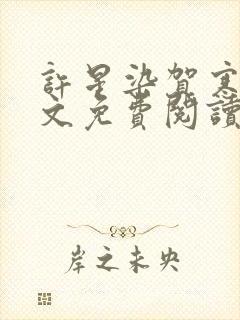 許星染賀
文免費閱讀
岸之未央